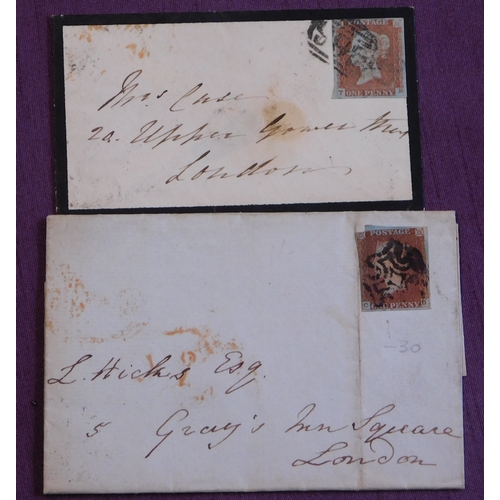 POSTAGE
ONE PENNY
Mrs Case
2a. Upper Gower Street
London
POSTAGE
ONE PENNY
-30
L. Hicks Esq.
5 Gray's Inn Square
London